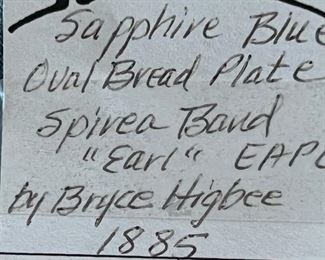 Sapphire Blue
Oval Bread Plate
Spirea Band
"Earl" EAPG
by Bryce Higbee
1885